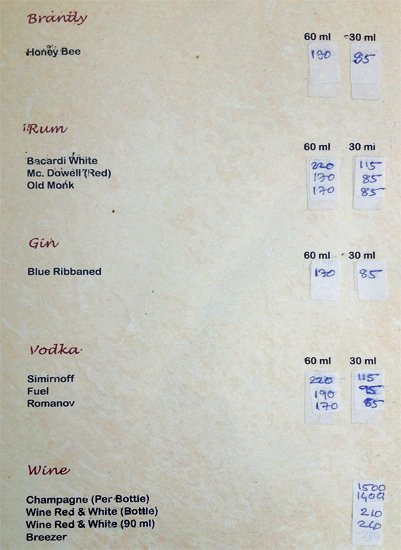 Brandy
60 ml 30 ml
Honey Bee 170
Rum
60 ml 30 ml
Bacardi White 220 115
Mc. Dowell (Red) 170 85
Old Monk 170 85
Gin
60 ml 30 ml
Blue Ribbaned 170 85
Vodka
60 ml 30 ml
Simirnoff 220 115
Fuel 190 95
Romanov 170 85
Wine
1500
Champagne (Per Bottle) 1400
Wine Red & White (Bottle) 210
Wine Red & White (90 ml)
Breezer